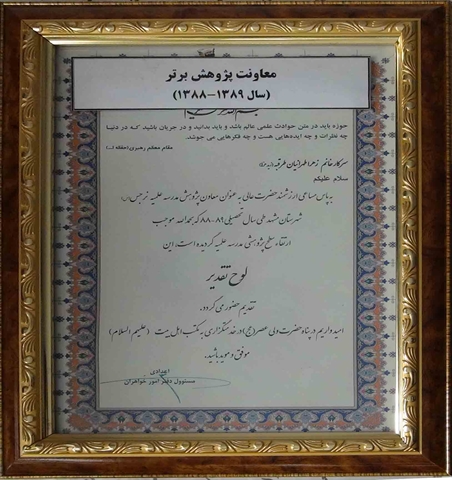 معاونت پژوهش برتر
(سال ۱۳۸۹-۱۳۸۸)
حوزه باید در متن حوادث علمی عالم باشد و باید بدانید و در جریان باشید که در دنیا
چه نظرات و چه ایده‌هایی هست و چه فکرهایی می جوشد.
مقام معظم رهبری
سرکار خانم زهرا طهرانیان طرقبه
سلام علیکم
به پاس مساعی ارزشمند حضرت عالی به عنوان معاون پژوهش مدرسه علمیه نرجس
شهرستان مشهد طی سال تحصیلی ۸۹-۸۸ که بحمدالله موجب
ارتقاء سطح پژوهشی مدرسه علمیه گردیده است، این
لوح تقدیر
تقدیم حضور می گردد.
امید داریم در پناه حضرت ولی عصر (عج) در خدمتگزاری به مکتب اهل بیت (علیهم السلام)
موفق و مؤید باشید.
اعدادی
مسئوول دفتر امور خواهران